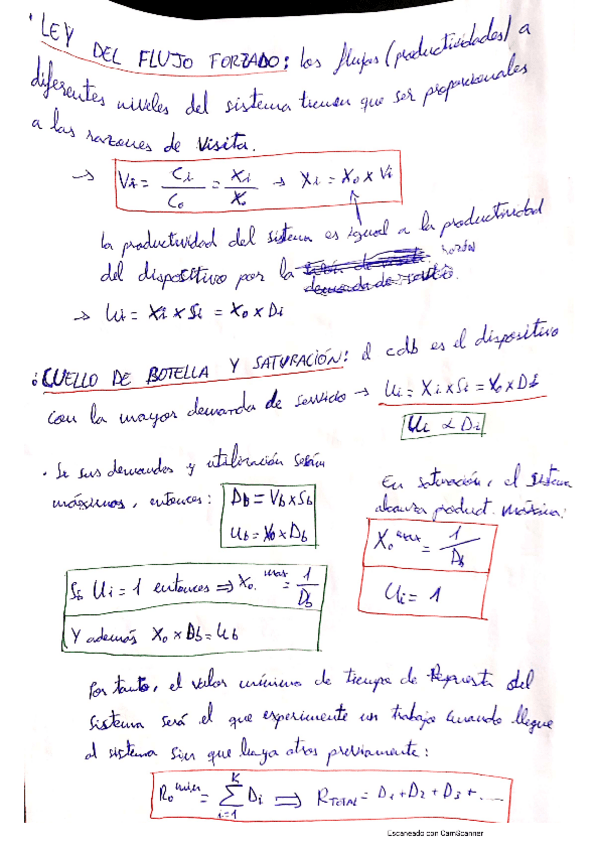 · LEY DEL FLUJO FORZADO: los flujos (productividades) a
diferentes niveles del sistema tienen que ser proporcionales
a las razones de visita.
→ Vi = Ci / C₀ = Xi / X₀ → Xi = X₀ x Vi
la productividad del sistema es igual a la productividad
del dispositivo por la razón
→ Ui = Xi x Si = X₀ x Di
· CUELLO DE BOTELLA Y SATURACIÓN: el cdb es el dispositivo
con la mayor demanda de servicio → Ui = Xi x Si = X₀ x Di
Ui ∝ Di
· Si sus demandas y utilización serán
máximas, entonces: Db = Vb x Sb
Ub = X₀ x Db
En saturación, el sistema
alcanza product. máxima:
X₀ᵐᵃˣ = 1 / Db
Ui = 1
Si Ui = 1 entonces ⇒ X₀ᵐᵃˣ = 1 / Db
Y además X₀ x Db = Ub
Por tanto, el valor mínimo de tiempo de Repuesta del
sistema será el que experimente un trabajo cuando llegue
al sistema sin que haya otros previamente:
R₀ᵐⁱⁿ = ∑ᵢ₌₁ᴷ Di ⇒ R_TOTAL = D₁ + D₂ + D₃ + ....
Escaneado con CamScanner